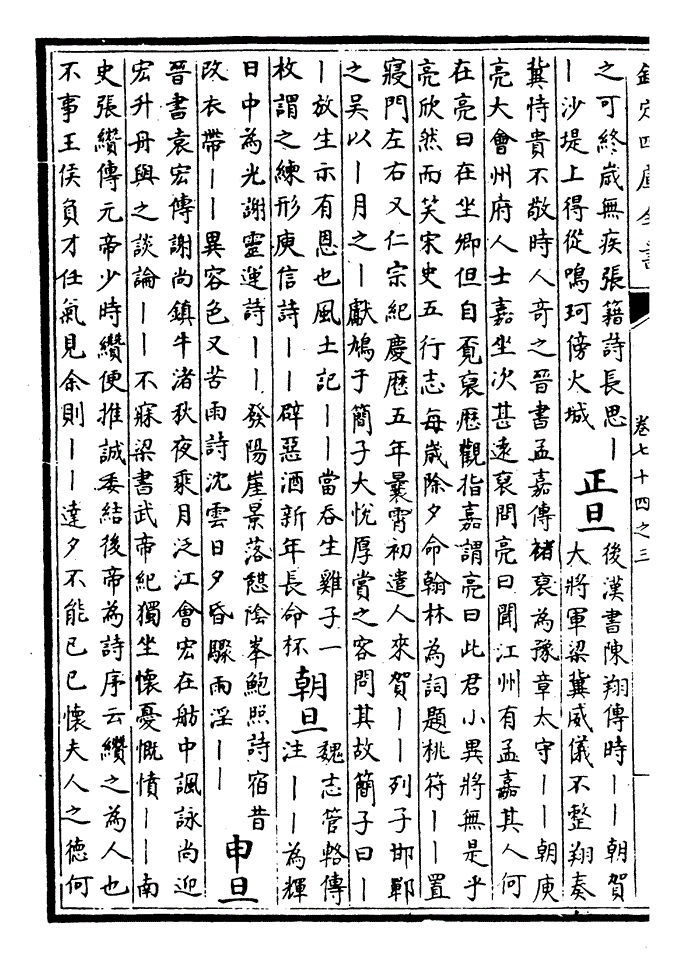 欽定四庫全書
卷七十四之三
之可終歲無疾張籍詩長思｜
｜沙堤上得從鳴珂傍火城
正旦
後漢書陳翔傳時｜｜朝賀
大將軍梁冀威儀不整翔奏
冀恃貴不敬時人奇之晉書孟嘉傳褚裒為豫章太守｜｜朝庾
亮大會州府人士嘉坐次甚遠裒問亮曰聞江州有孟嘉其人何
在亮曰在坐卿但自覓裒歷觀指嘉謂亮曰此君小異將無是乎
亮欣然而笑宋史五行志每歲除夕命翰林為詞題桃符｜｜置
寢門左右又仁宗紀慶歷五年曩霄初遣人來賀｜｜列子邯鄲
之吳以｜月之｜獻鳩于簡子大悅厚賞之客問其故簡子曰｜
｜放生示有恩也風土記｜｜當吞生雞子一
枚謂之練形庾信詩｜｜辟惡酒新年長命杯
朝旦
魏志管輅傳
注｜｜為輝
日中為光謝靈運詩｜｜發陽崖景落憩陰峯鮑照詩宿昔
改衣帶｜｜異容色又苦雨詩沈雲日夕昏驟雨淫｜｜
申旦
晉書袁宏傳謝尚鎮牛渚秋夜乘月泛江會宏在舫中諷詠尚迎
宏升舟與之談論｜｜不寐梁書武帝紀獨坐懷憂慨憤｜｜南
史張纘傳元帝少時纘便推誠委結後帝為詩序云纘之為人也
不事王侯負才任氣見余則｜｜達夕不能已已懷夫人之德何